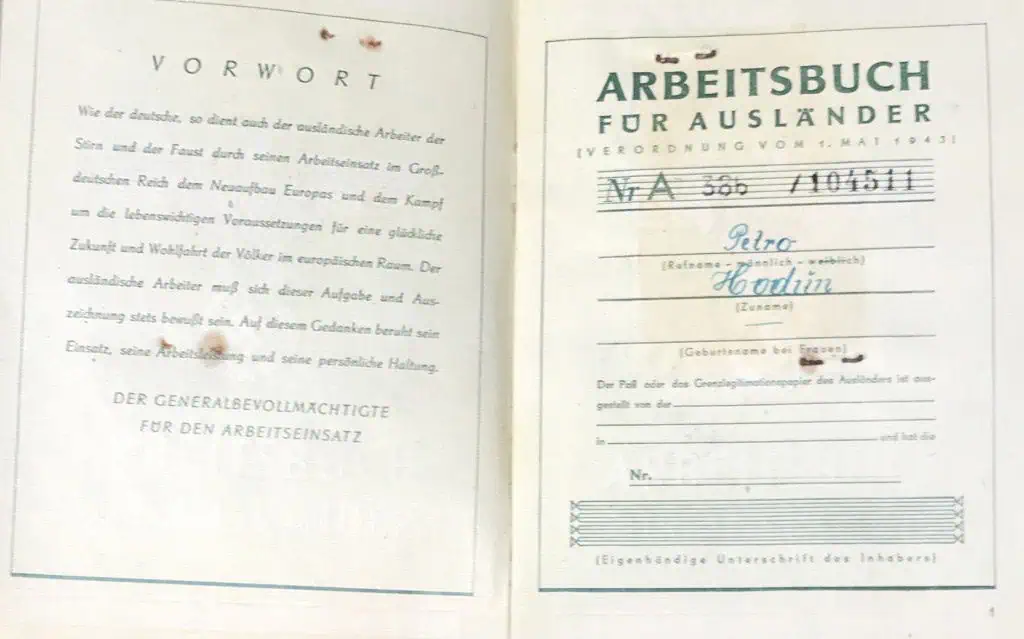 VORWORT
Wie der deutsche, so dient auch der ausländische Arbeiter der
Stirn und der Faust durch seinen Arbeitseinsatz im Groß-
deutschen Reich dem Neuaufbau Europas und dem Kampf
um die lebenswichtigen Voraussetzungen für eine glückliche
Zukunft und Wohlfahrt der Völker im europäischen Raum. Der
ausländische Arbeiter muß sich dieser Aufgabe und Aus-
zeichnung stets bewußt sein. Auf diesem Gedanken beruht sein
Einsatz, seine Arbeitsleistung und seine persönliche Haltung.
DER GENERALBEVOLLMÄCHTIGTE
FÜR DEN ARBEITSEINSATZ
ARBEITSBUCH
FÜR AUSLÄNDER
(VERORDNUNG VOM 1. MAI 1943)
Nr A 38b /104511
Petro
(Rufname - männlich - weiblich)
Hodün
(Zuname)
(Geburtsname bei Frauen)
Der Paß oder das Grenzlegitimationspapier des Ausländers ist aus-
gestellt von der
in und hat die
Nr.
(Eigenhändige Unterschrift des Inhabers)
1